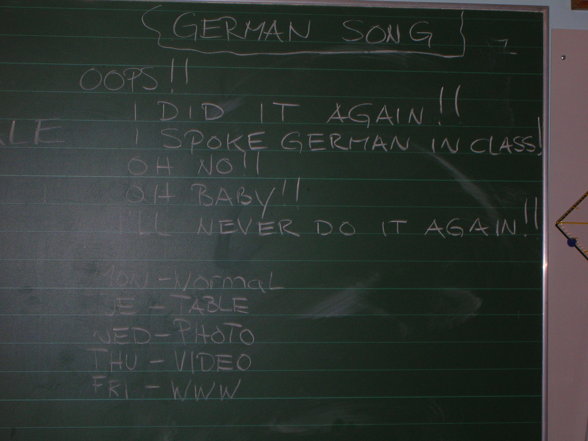 GERMAN SONG
OOPS!!
I DID IT AGAIN!!
I SPOKE GERMAN IN CLASS!
OH NO!!
OH BABY!!
I'LL NEVER DO IT AGAIN!!
MON - NORMAL
TUE - TABLE
WED - PHOTO
THU - VIDEO
FRI - WWW